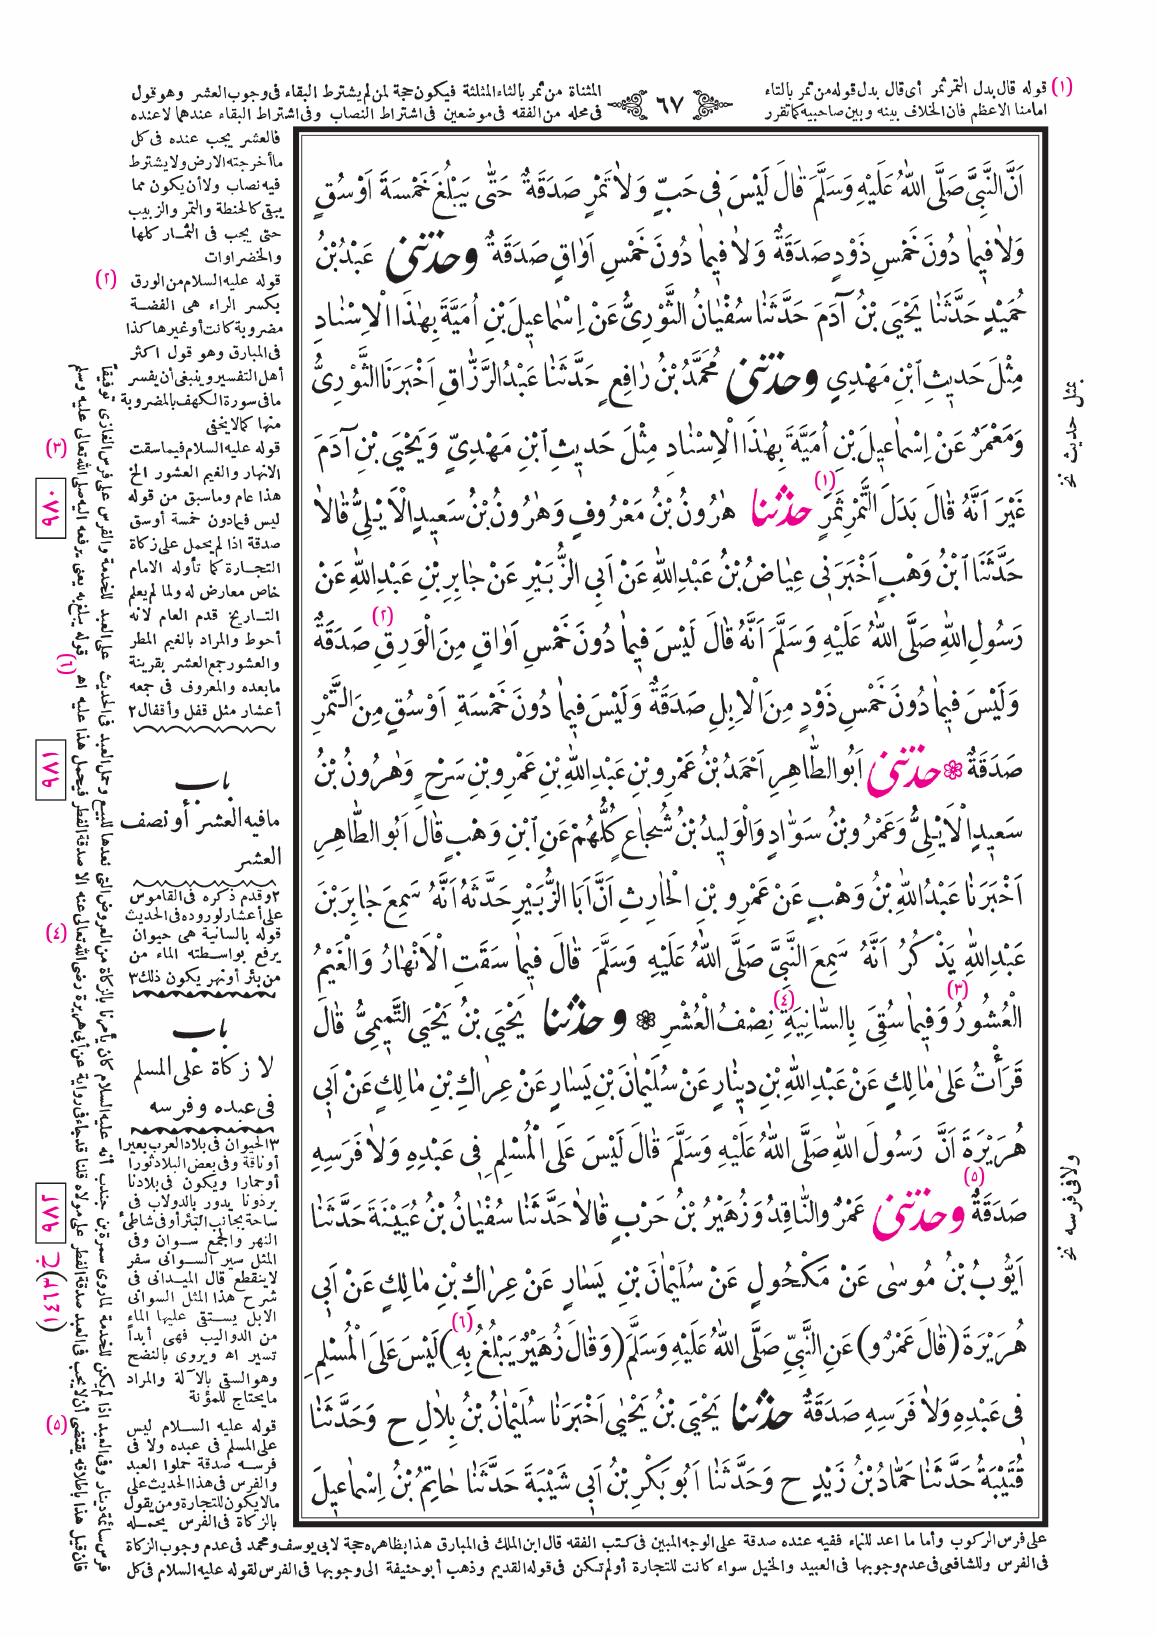 (١) قوله قال بدل التمر ثمر أى قال بدل قوله من تمر بالتاء
امامنا الاعظم فان الخلاف بينه وبين صاحبيه كما تقرر
٦٧
المثناة من ثمر بالثاء المثلثة فيكون حجة لمن لم يشترط البقاء فى وجوب العشر وهو قول
فى محله من الفقه فى موضعين فى اشتراط النصاب وفى اشتراط البقاء عندهما لا عنده
اَنَّ النَّبِيَّ صَلَّى اللهُ عَلَيْهِ وَسَلَّمَ قَالَ لَيْسَ فِى حَبٍّ وَلَا تَمْرٍ صَدَقَةٌ حَتَّى يَبْلُغَ خَمْسَةَ اَوْسُقٍ
وَلَا فِيمَا دُونَ خَمْسِ ذَوْدٍ صَدَقَةٌ وَلَا فِيمَا دُونَ خَمْسِ اَوَاقٍ صَدَقَةٌ وحدثنى عَبْدُ بْنُ
حُمَيْدٍ حَدَّثَنَا يَحْيَى بْنُ آدَمَ حَدَّثَنَا سُفْيَانُ الثَّوْرِىُّ عَنْ اِسْمَاعِيلَ بْنِ اُمَيَّةَ بِهٰذَا الْاِسْنَادِ
مِثْلَ حَدِيثِ ابْنِ مَهْدِي وحدثنى مُحَمَّدُ بْنُ رَافِعٍ حَدَّثَنَا عَبْدُ الرَّزَّاقِ اَخْبَرَنَا الثَّوْرِىُّ
وَمَعْمَرٌ عَنْ اِسْمَاعِيلَ بْنِ اُمَيَّةَ بِهٰذَا الْاِسْنَادِ مِثْلَ حَدِيثِ ابْنِ مَهْدِيٍّ وَيَحْيَى بْنِ آدَمَ
غَيْرَ اَنَّهُ قَالَ بَدَلَ التَّمْرِ ثَمَرٍ (١) حدثنا هٰرُونُ بْنُ مَعْرُوفٍ وَهٰرُونُ بْنُ سَعِيدٍ الْاَيْلِىُّ قَالَا
حَدَّثَنَا ابْنُ وَهْبٍ اَخْبَرَنِى عِيَاضُ بْنُ عَبْدِ اللهِ عَنْ اَبِى الزُّبَيْرِ عَنْ جَابِرِ بْنِ عَبْدِ اللهِ عَنْ
رَسُولِ اللهِ صَلَّى اللهُ عَلَيْهِ وَسَلَّمَ اَنَّهُ قَالَ لَيْسَ فِيمَا دُونَ خَمْسِ اَوَاقٍ مِنَ الْوَرِقِ (٢) صَدَقَةٌ
وَلَيْسَ فِيمَا دُونَ خَمْسِ ذَوْدٍ مِنَ الْاِبِلِ صَدَقَةٌ وَلَيْسَ فِيمَا دُونَ خَمْسَةِ اَوْسُقٍ مِنَ التَّمْرِ
صَدَقَةٌ ❁ حدثنى اَبُو الطَّاهِرِ اَحْمَدُ بْنُ عَمْرِو بْنِ عَبْدِ اللهِ بْنِ عَمْرِو بْنِ سَرْحٍ وَهٰرُونُ بْنُ
سَعِيدٍ الْاَيْلِىُّ وَعَمْرُو بْنُ سَوَّادٍ وَالْوَلِيدُ بْنُ شُجَاعٍ كُلُّهُمْ عَنِ ابْنِ وَهْبٍ قَالَ اَبُو الطَّاهِرِ
اَخْبَرَنَا عَبْدُ اللهِ بْنُ وَهْبٍ عَنْ عَمْرِو بْنِ الْحَارِثِ اَنَّ اَبَا الزُّبَيْرِ حَدَّثَهُ اَنَّهُ سَمِعَ جَابِرَ بْنَ
عَبْدِ اللهِ يَذْكُرُ اَنَّهُ سَمِعَ النَّبِيَّ صَلَّى اللهُ عَلَيْهِ وَسَلَّمَ قَالَ فِيمَا سَقَتِ الْاَنْهَارُ وَالْغَيْمُ
الْعُشُورُ (٣) وَفِيمَا سُقِىَ بِالسَّانِيَةِ (٤) نِصْفُ الْعُشْرِ ❁ وحدثنا يَحْيَى بْنُ يَحْيَى التَّمِيمِىُّ قَالَ
قَرَأْتُ عَلَى مَالِكٍ عَنْ عَبْدِ اللهِ بْنِ دِينَارٍ عَنْ سُلَيْمَانَ بْنِ يَسَارٍ عَنْ عِرَاكِ بْنِ مَالِكٍ عَنْ اَبِى
هُرَيْرَةَ اَنَّ رَسُولَ اللهِ صَلَّى اللهُ عَلَيْهِ وَسَلَّمَ قَالَ لَيْسَ عَلَى الْمُسْلِمِ فِى عَبْدِهِ وَلَا فَرَسِهِ
صَدَقَةٌ (٥) وحدثنى عَمْرٌو النَّاقِدُ وَزُهَيْرُ بْنُ حَرْبٍ قَالَا حَدَّثَنَا سُفْيَانُ بْنُ عُيَيْنَةَ حَدَّثَنَا
اَيُّوبُ بْنُ مُوسَى عَنْ مَكْحُولٍ عَنْ سُلَيْمَانَ بْنِ يَسَارٍ عَنْ عِرَاكِ بْنِ مَالِكٍ عَنْ اَبِى
هُرَيْرَةَ (قَالَ عَمْرٌو) عَنِ النَّبِيِّ صَلَّى اللهُ عَلَيْهِ وَسَلَّمَ (وَقَالَ زُهَيْرٌ يَبْلُغُ بِهِ) (٦) لَيْسَ عَلَى الْمُسْلِمِ
فِى عَبْدِهِ وَلَا فَرَسِهِ صَدَقَةٌ حدثنا يَحْيَى بْنُ يَحْيَى اَخْبَرَنَا سُلَيْمَانُ بْنُ بِلَالٍ ح وَحَدَّثَنَا
قُتَيْبَةُ حَدَّثَنَا حَمَّادُ بْنُ زَيْدٍ ح وَحَدَّثَنَا اَبُو بَكْرِ بْنُ اَبِى شَيْبَةَ حَدَّثَنَا حَاتِمُ بْنُ اِسْمَاعِيلَ
بمثل حديث نخ
ولا فى فرسه نخ
فالعشر يجب عنده فى كل
ما أخرجته الارض ولا يشترط
فيه نصاب ولا أن يكون مما
يبقى كالحنطة والتمر والزبيب
حتى يجب فى الثمار كلها
والخضراوات
(٢) قوله عليه السلام من الورق
بكسر الراء هى الفضة
مضروبة كانت أو غيرها كذا
فى المبارق وهو قول اكثر
أهل التفسير وينبغى أن يفسر
ما فى سورة الكهف بالمضروبة
منها كما لا يخفى
(٣) قوله عليه السلام فيما سقت
الانهار والغيم العشور الخ
هذا عام وما سبق من قوله
ليس فيما دون خمسة أوسق
صدقة اذا لم يحمل على زكاة
التجارة كما تأوله الامام
خاص معارض له ولما لم يعلم
التاريخ قدم العام لانه
أحوط والمراد بالغيم المطر
والعشور جمع العشر بقرينة
ما بعده والمعروف فى جمعه
أعشار مثل قفل وأقفال ٢
باب
ما فيه العشر أو نصف
العشر
٢ وقدم ذكره فى القاموس
على أعشار لوروده فى الحديث
(٤) قوله بالسانية هى حيوان
يرفع بواسطته الماء من
من بئر أو نهر يكون ذلك ٣
باب
لا زكاة على المسلم
فى عبده وفرسه
٣ الحيوان فى بلاد العرب بعيرا
أو ناقة وفى بعض البلاد ثورا
أو حمارا ويكون فى بلادنا
برذونا يدور بالدولاب فى
ساحة بجانب البئر أو فى شاطئ
النهر والجمع سوان وفى
المثل سير السوانى سفر
لا ينقطع قال الميدانى فى
شرح هذا المثل السوانى
الابل يستقى عليها الماء
من الدواليب فهى أبداً
تسير اه ويروى بالنضح
وهو السقى بالآلة والمراد
ما يحتاج للمؤنة
(٥) قوله عليه السلام ليس
على المسلم فى عبده ولا فى
فرسه صدقة حملوا العبد
والفرس فى هذا الحديث على
ما لا يكون للتجارة ومن يقول
بالزكاة فى الفرس يحمله
على فرس الركوب وأما ما اعد للنماء ففيه عنده صدقة على الوجه المبين فى كتب الفقه قال ابن الملك فى المبارق هذا بظاهره حجة لابى يوسف ومحمد فى عدم وجوب الزكاة
فى الفرس وللشافعى فى عدم وجوبها فى العبيد والخيل سواء كانت للتجارة أو لم تكن فى قوله القديم وذهب أبو حنيفة الى وجوبها فى الفرس لقوله عليه السلام فى كل